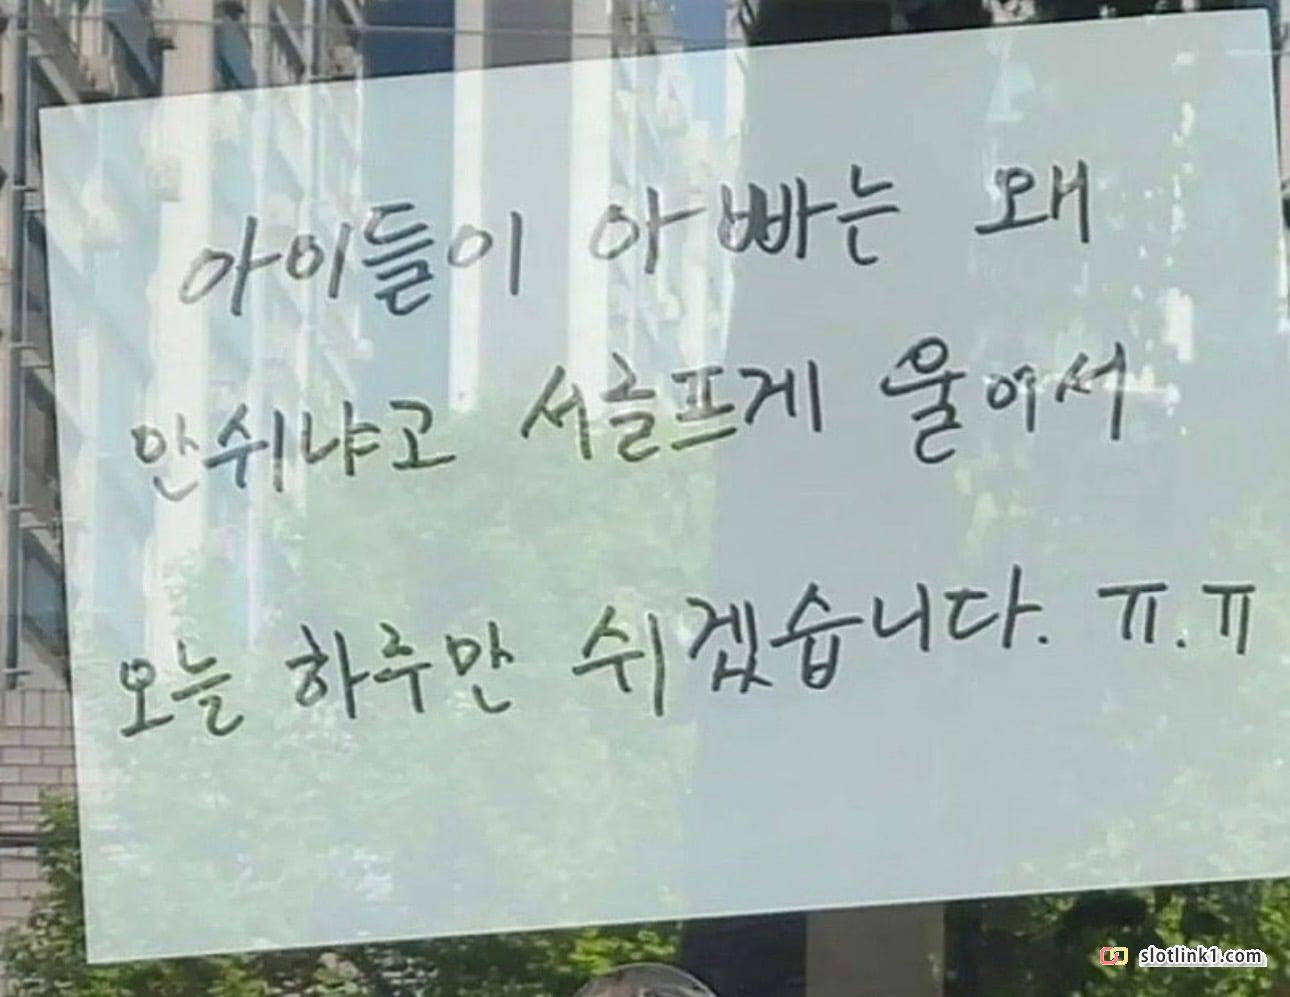 아이들이 아빠는 왜
안쉬냐고 서글프게 울어서
오늘 하루만 쉬겠습니다. ㅠ.ㅠ
slotlink1.com